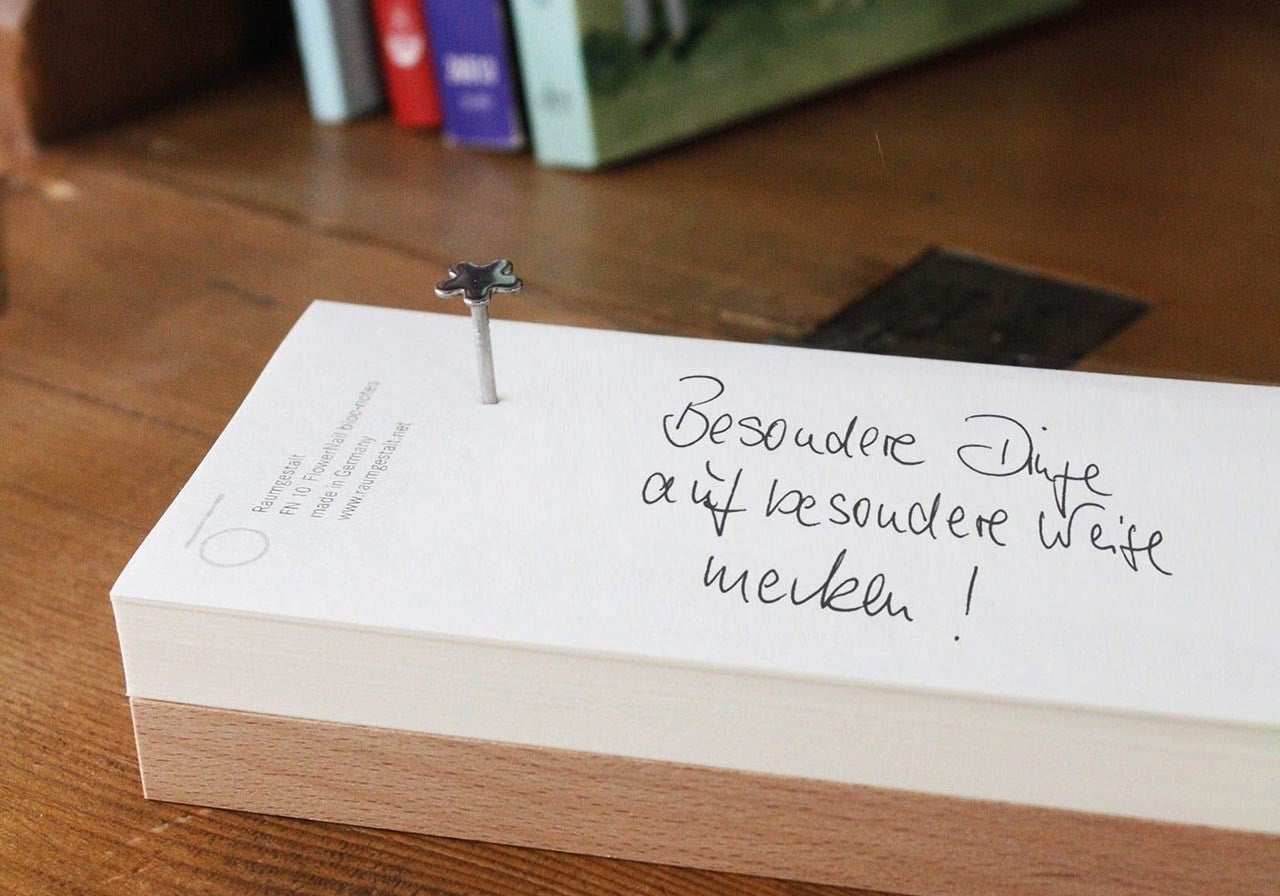 Raumgestalt
FN 10 FlowerNail bloc-notes
made in Germany
www.raumgestalt.net
Besondere Dinge
auf besondere Weise
merken !